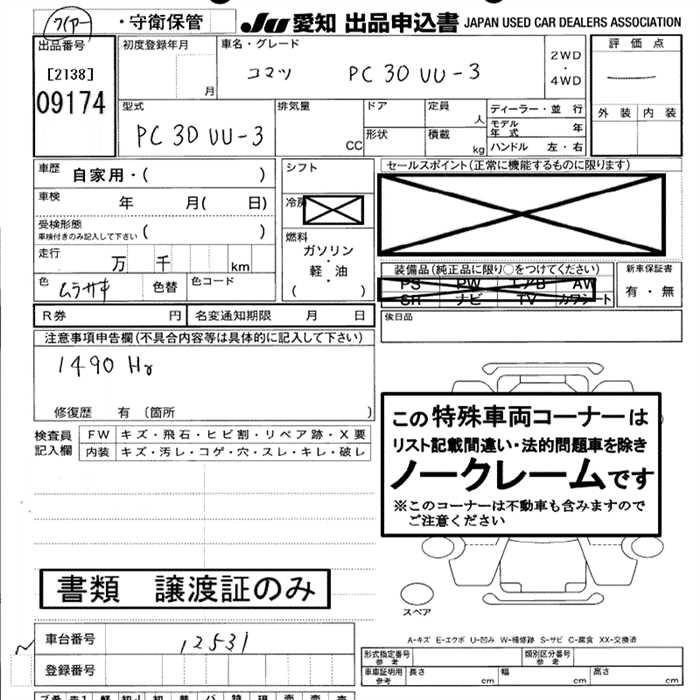 ・守衛保管 JU 愛知 出品申込書 JAPAN USED CAR DEALERS ASSOCIATION
出品番号
[2138]
09174
初度登録年月
月
車名・グレード
コマツ PC 30 UU-3
2WD
・
4WD
評価点
外装 内装
型式
PC 30 UU-3
排気量
CC
ドア
形状
定員
人
積載
kg
ディーラー・並 行
モデル年式 年
ハンドル 左・右
車歴
自家用・( )
車検 年 月( 日)
受検形態
車検付きのみ記入して下さい ( )
走行 万 千 km
色 ムラサキ 色替 色コード
シフト
冷房
燃料
ガソリン
・
軽・油
( )
セールスポイント(正常に機能するものに限ります)
装備品(純正品に限り○をつけてください)
PS PW エアB AW
SR ナビ TV カワシート
新車保証書
有・無
R券 円 名変通知期限 月 日
後日品
注意事項申告欄(不具合内容等は具体的に記入して下さい)
1490 Hr
修復歴 有 〔箇所 〕
検査員
記入欄
FW キズ・飛石・ヒビ割・リペア跡・X要
内装 キズ・汚レ・コゲ・穴・スレ・キレ・破レ
この特殊車両コーナーは
リスト記載間違い・法的問題車を除き
ノークレームです
※このコーナーは不動車も含みますので
ご注意ください
スペア
書類 譲渡証のみ
A-キズ E-エクボ U-凹み W-補修跡 S-サビ C-腐食 XX-交換済
車台番号 12531
登録番号
形式指定番号
参考
類別区分番号
参考
車車証明用
参考
長さ 幅 高さ
cm cm cm